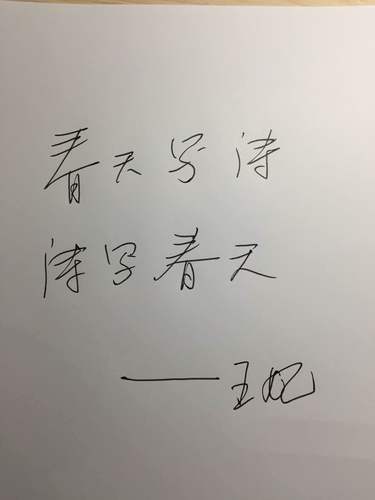 春天写诗
诗写春天
——王妃